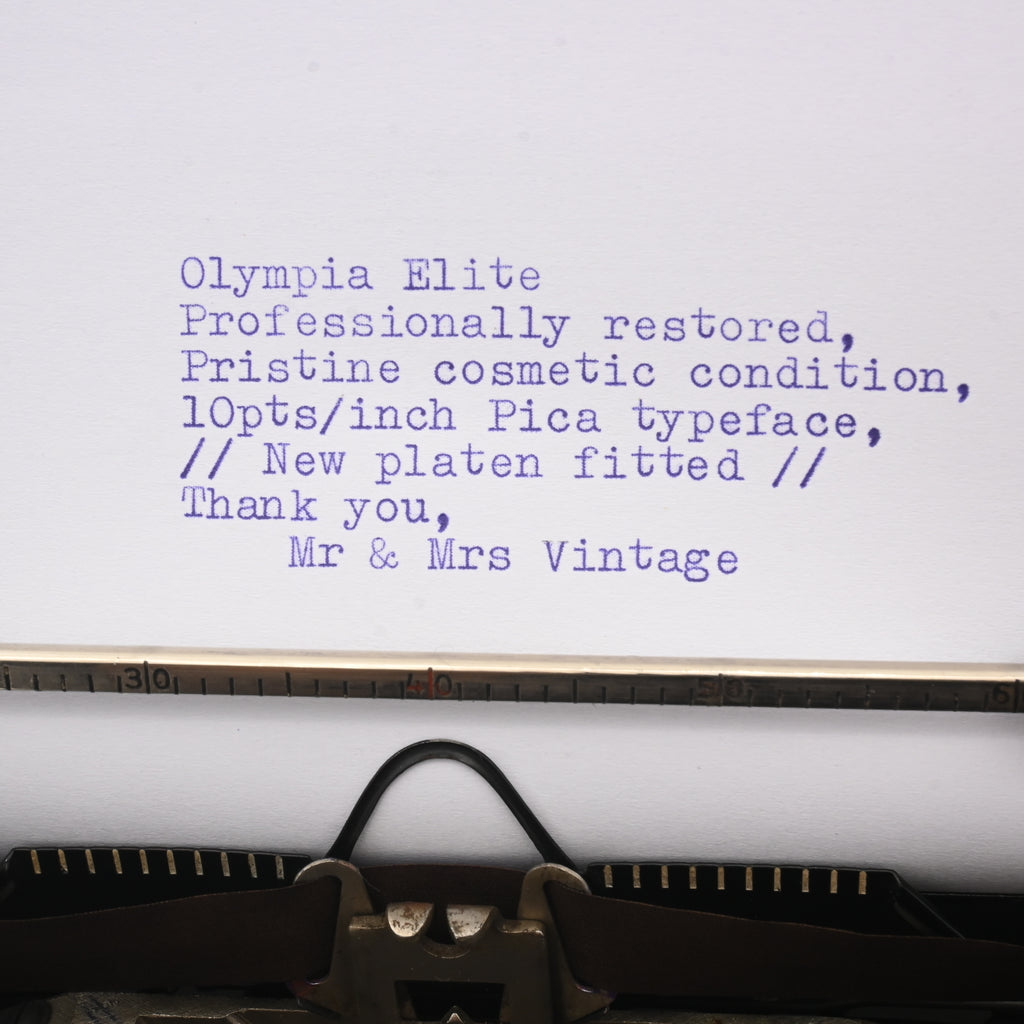 Olympia Elite
Professionally restored,
Pristine cosmetic condition,
10pts/inch Pica typeface,
// New platen fitted //
Thank you,
Mr & Mrs Vintage
30 40 50 6